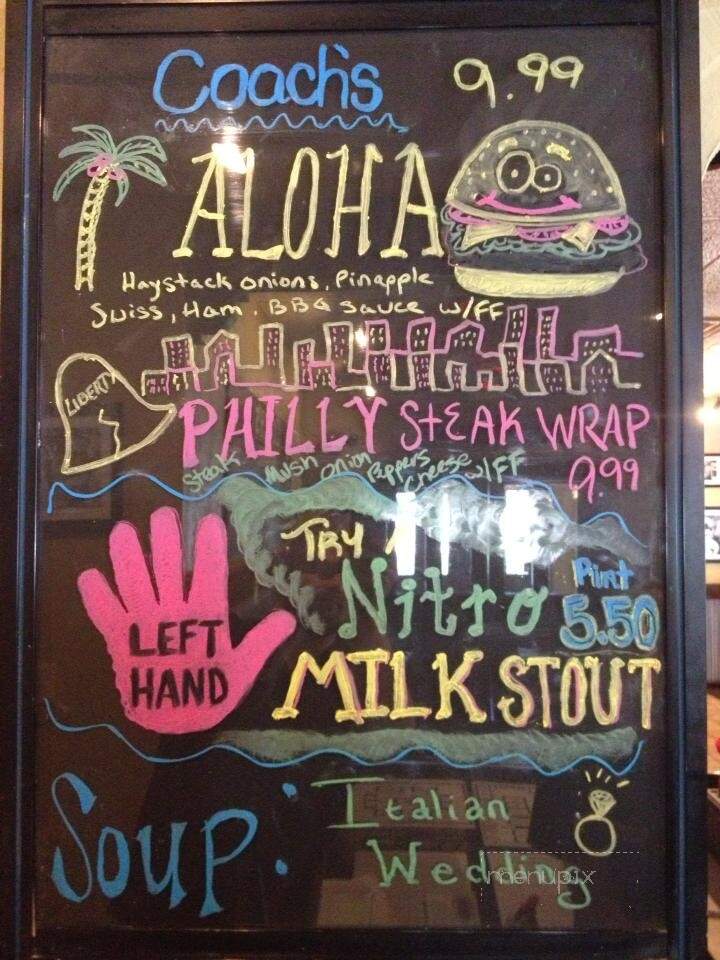 Coach's 9.99
ALOHA
Haystack onions, Pinapple
Swiss, Ham, BBQ Sauce w/FF
LIBERTY
PHILLY StEAK WRAP
9.99
Steak Mush onion Peppers Cheese w/FF
TRY A
Nitro
Pint
5.50
LEFT
HAND
MILK STOUT
Soup: Italian
Wedding
menupix